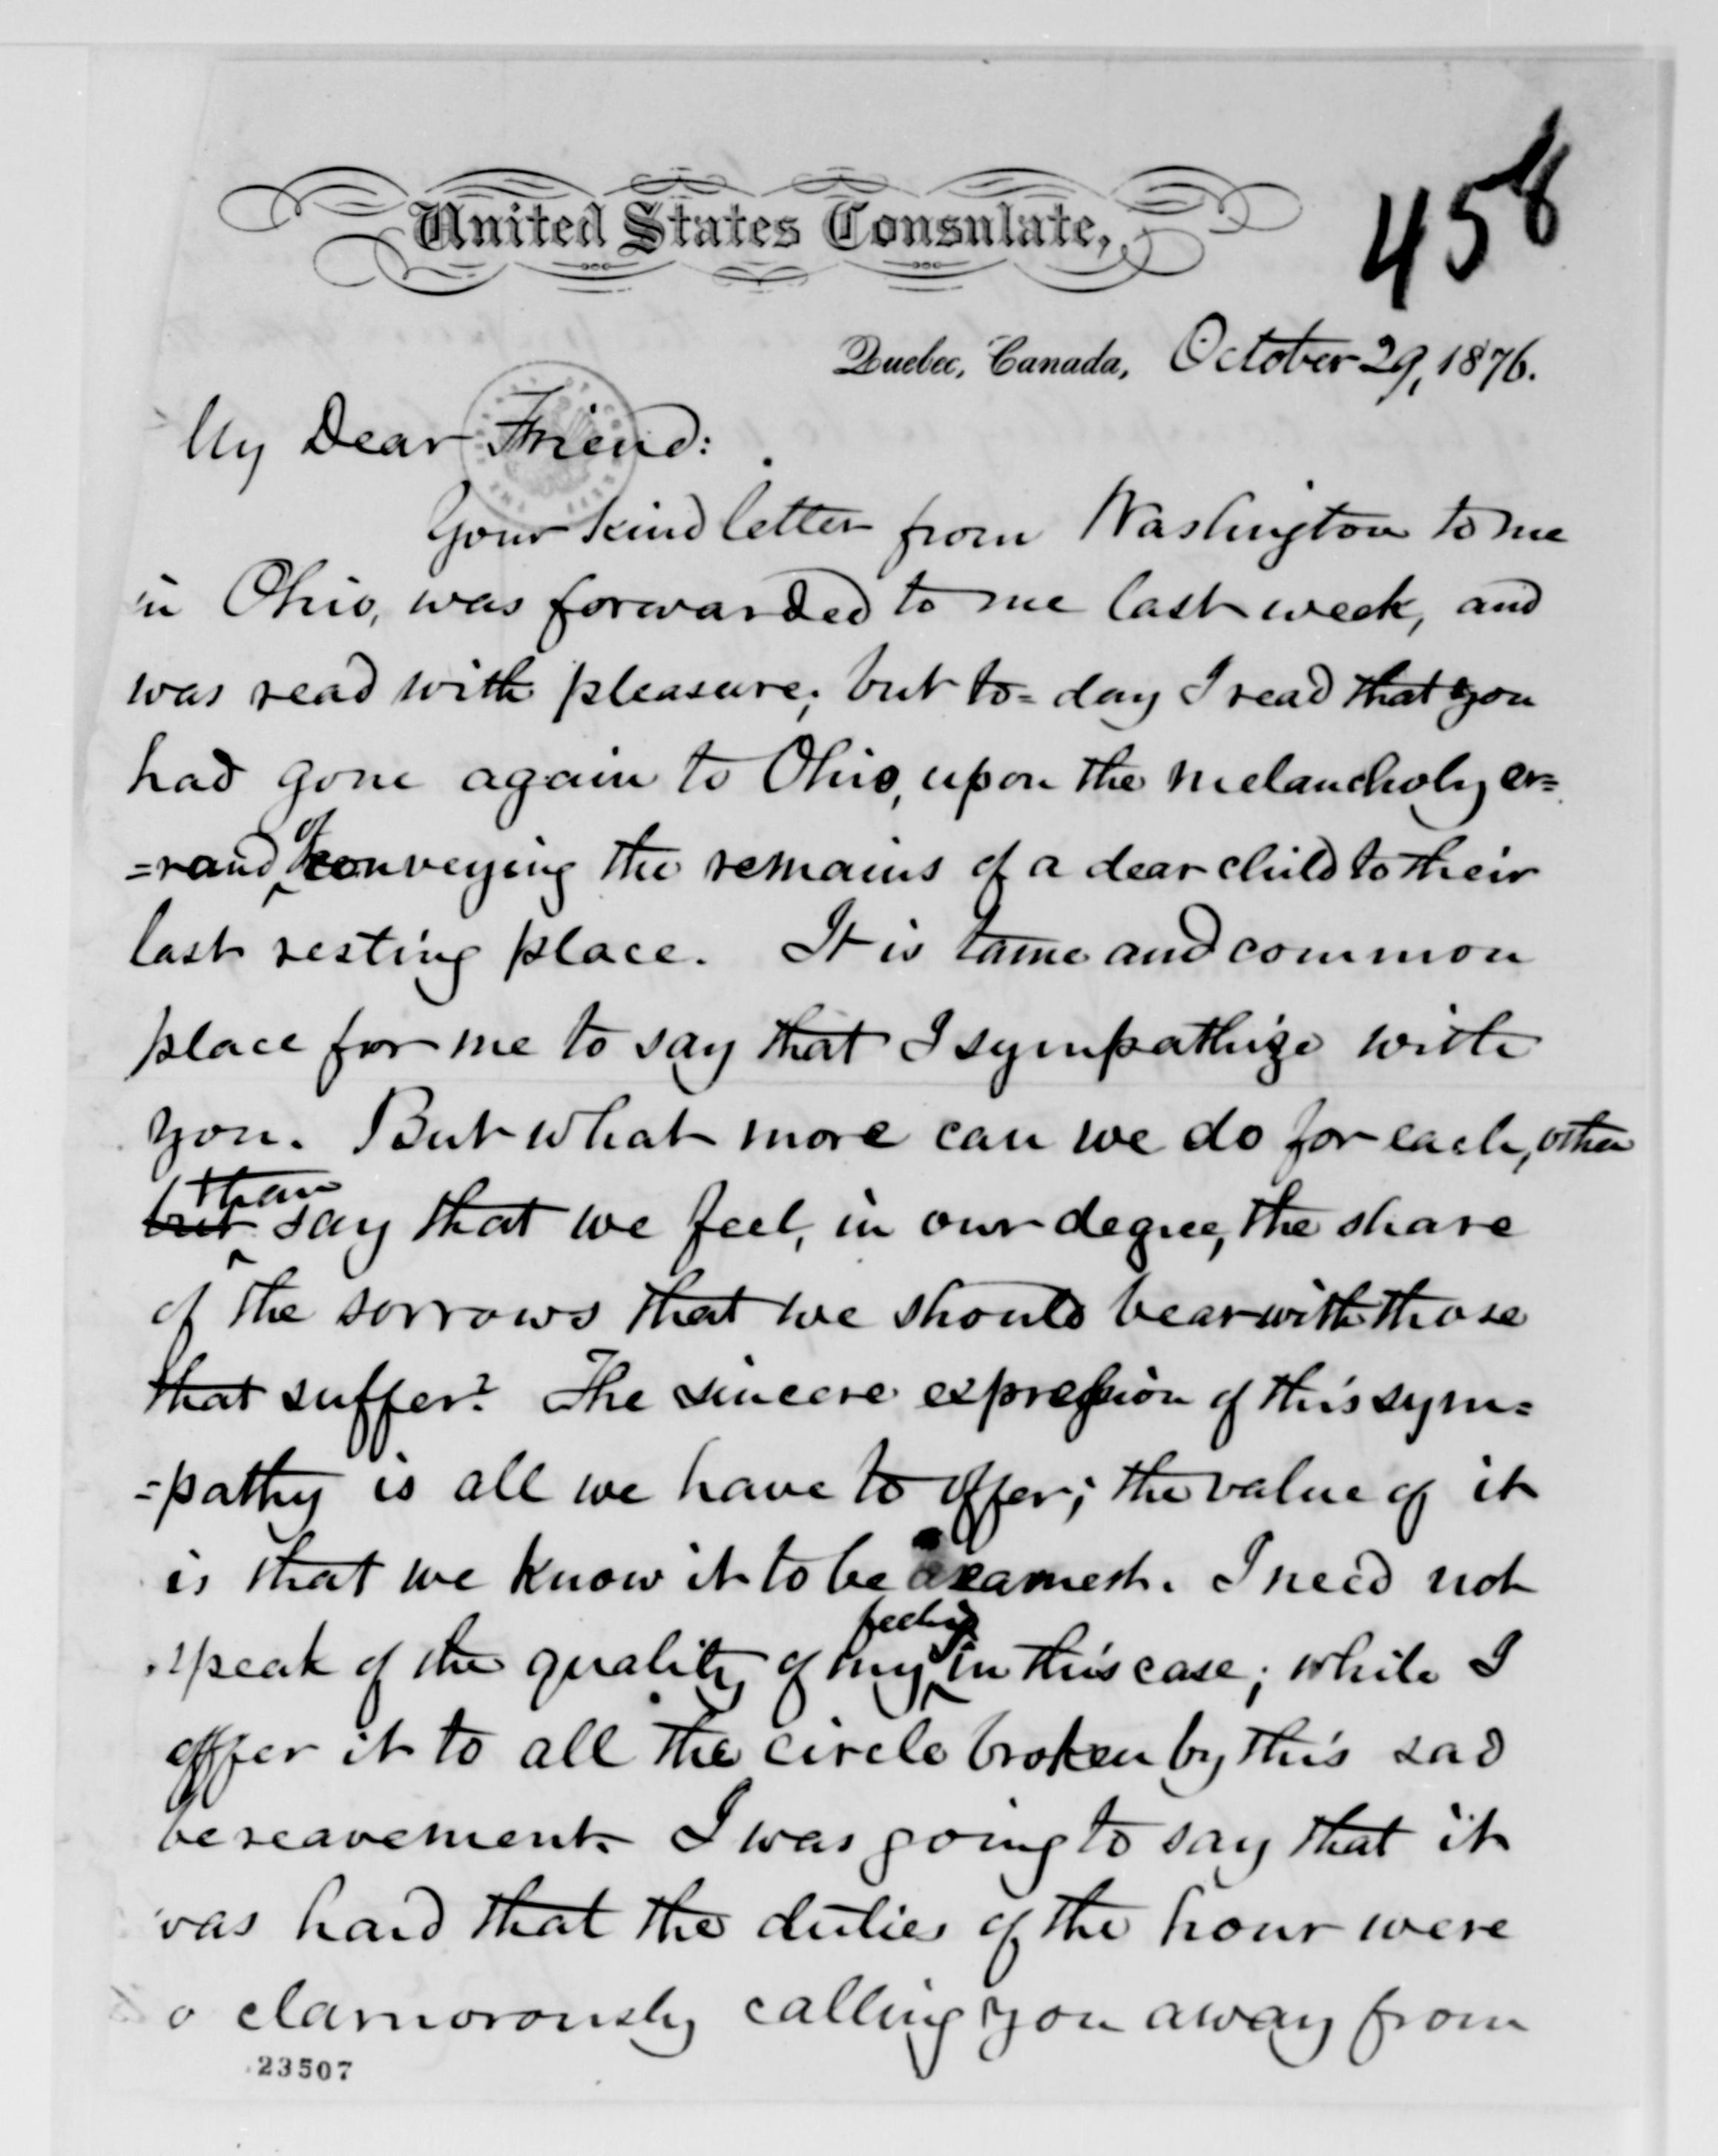 458
United States Consulate,
Quebec, Canada, October 29, 1876.
My Dear Friend:
Your kind letter from Washington to me
in Ohio, was forwarded to me last week, and
was read with pleasure; but to=day I read that you
had gone again to Ohio, upon the melancholy er=
=rand of conveying the remains of a dear child to their
last resting place. It is tame and common
place for me to say that I sympathize with
you. But what more can we do for each, other
but than say that we feel, in our degree, the share
of the sorrows that we should bear with those
that suffer? The sincere expression of this sym=
=pathy is all we have to offer; the value of it
is that we know it to be earnest. I need not
speak of the quality of my feeling in this case; while I
offer it to all the circle broken by this sad
bereavement. I was going to say that it
was hard that the duties of the hour were
so clamorously calling you away from
23507